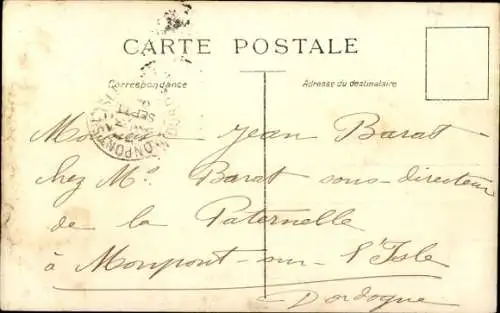 CARTE POSTALE
Correspondance
Adresse du destinataire
Monsieur Jean Barat
chez Mr. Barat sous-directeur
de la Paternelle
à Monpont-sur-l'Isle
Dordogne